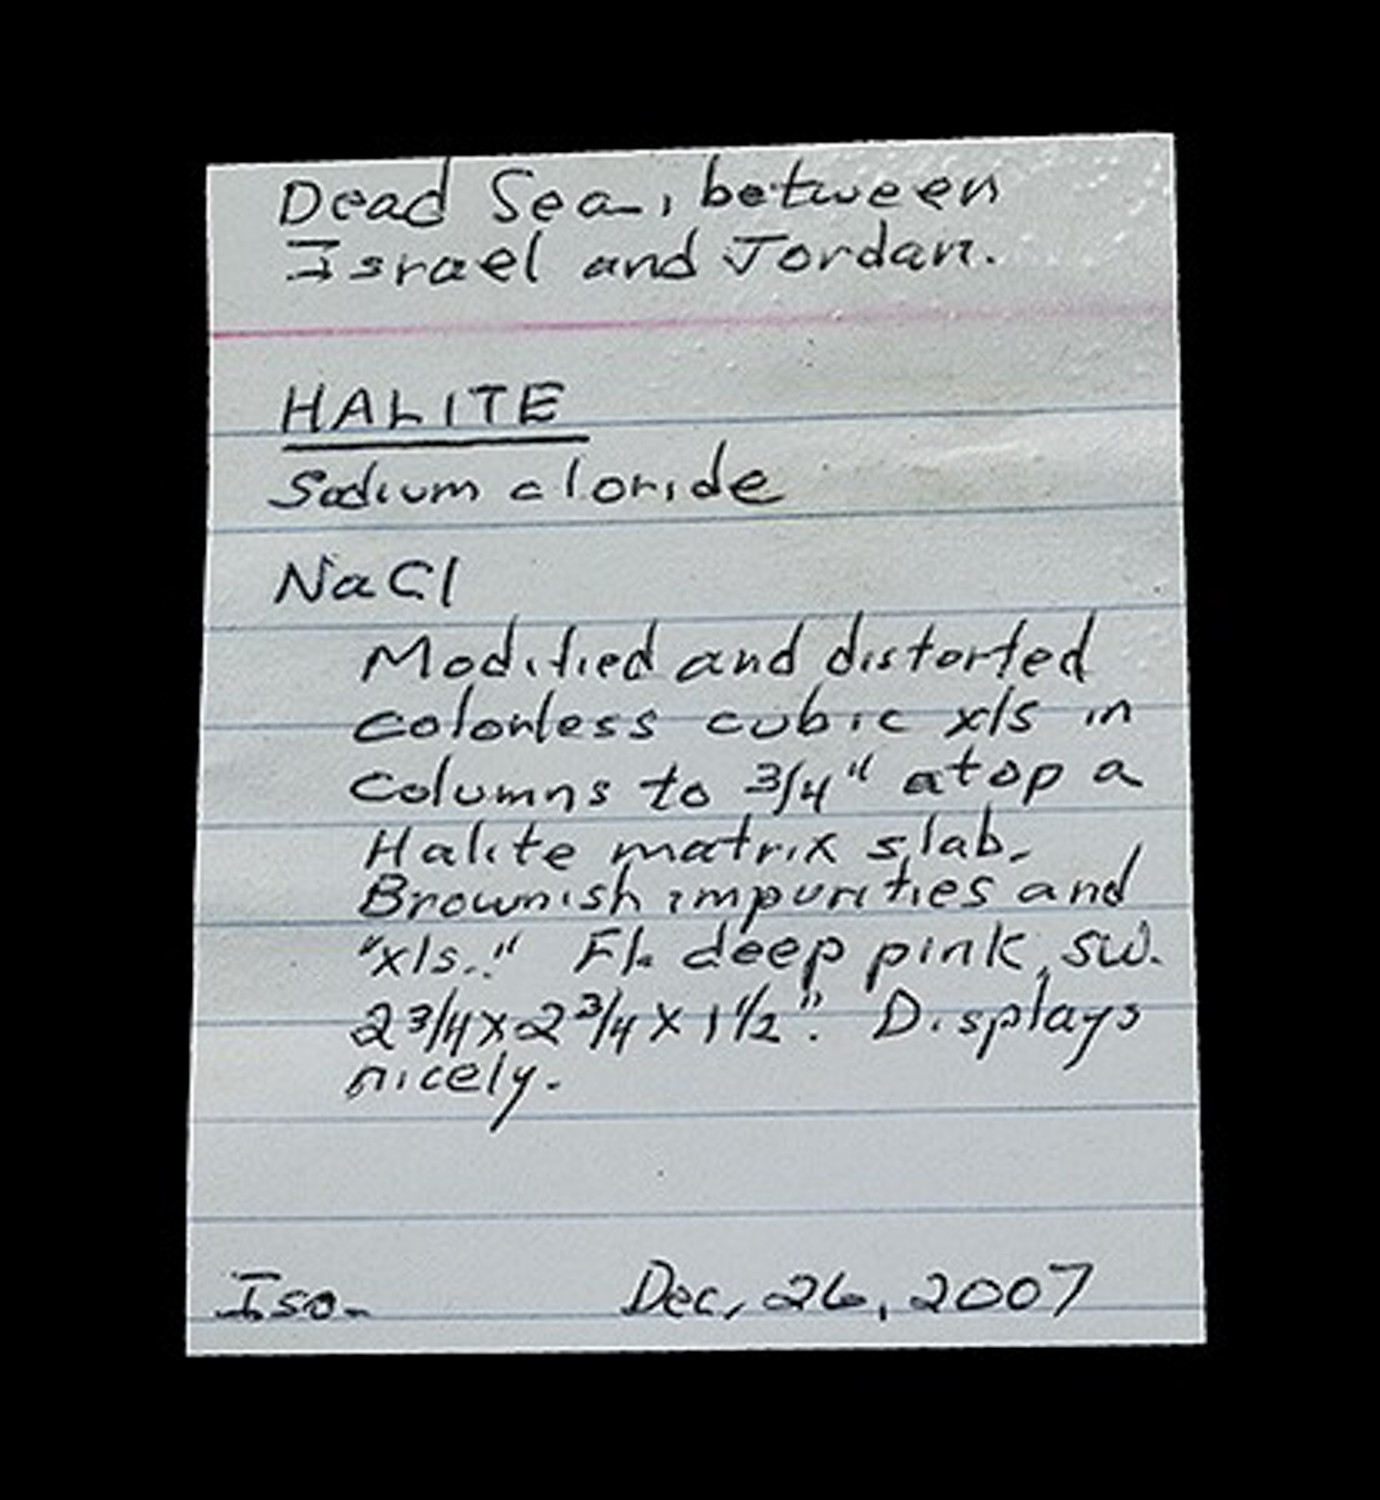 Dead Sea, between
Israel and Jordan.
HALITE
Sodium cloride
NaCl
Modified and distorted
colorless cubic xls in
columns to 3/4" atop a
Halite matrix slab.
Brownish impurities and
"xls.." Fl. deep pink, SW.
2 3/4 x 2 3/4 x 1 1/2". Displays
nicely.
Iso. Dec, 26, 2007